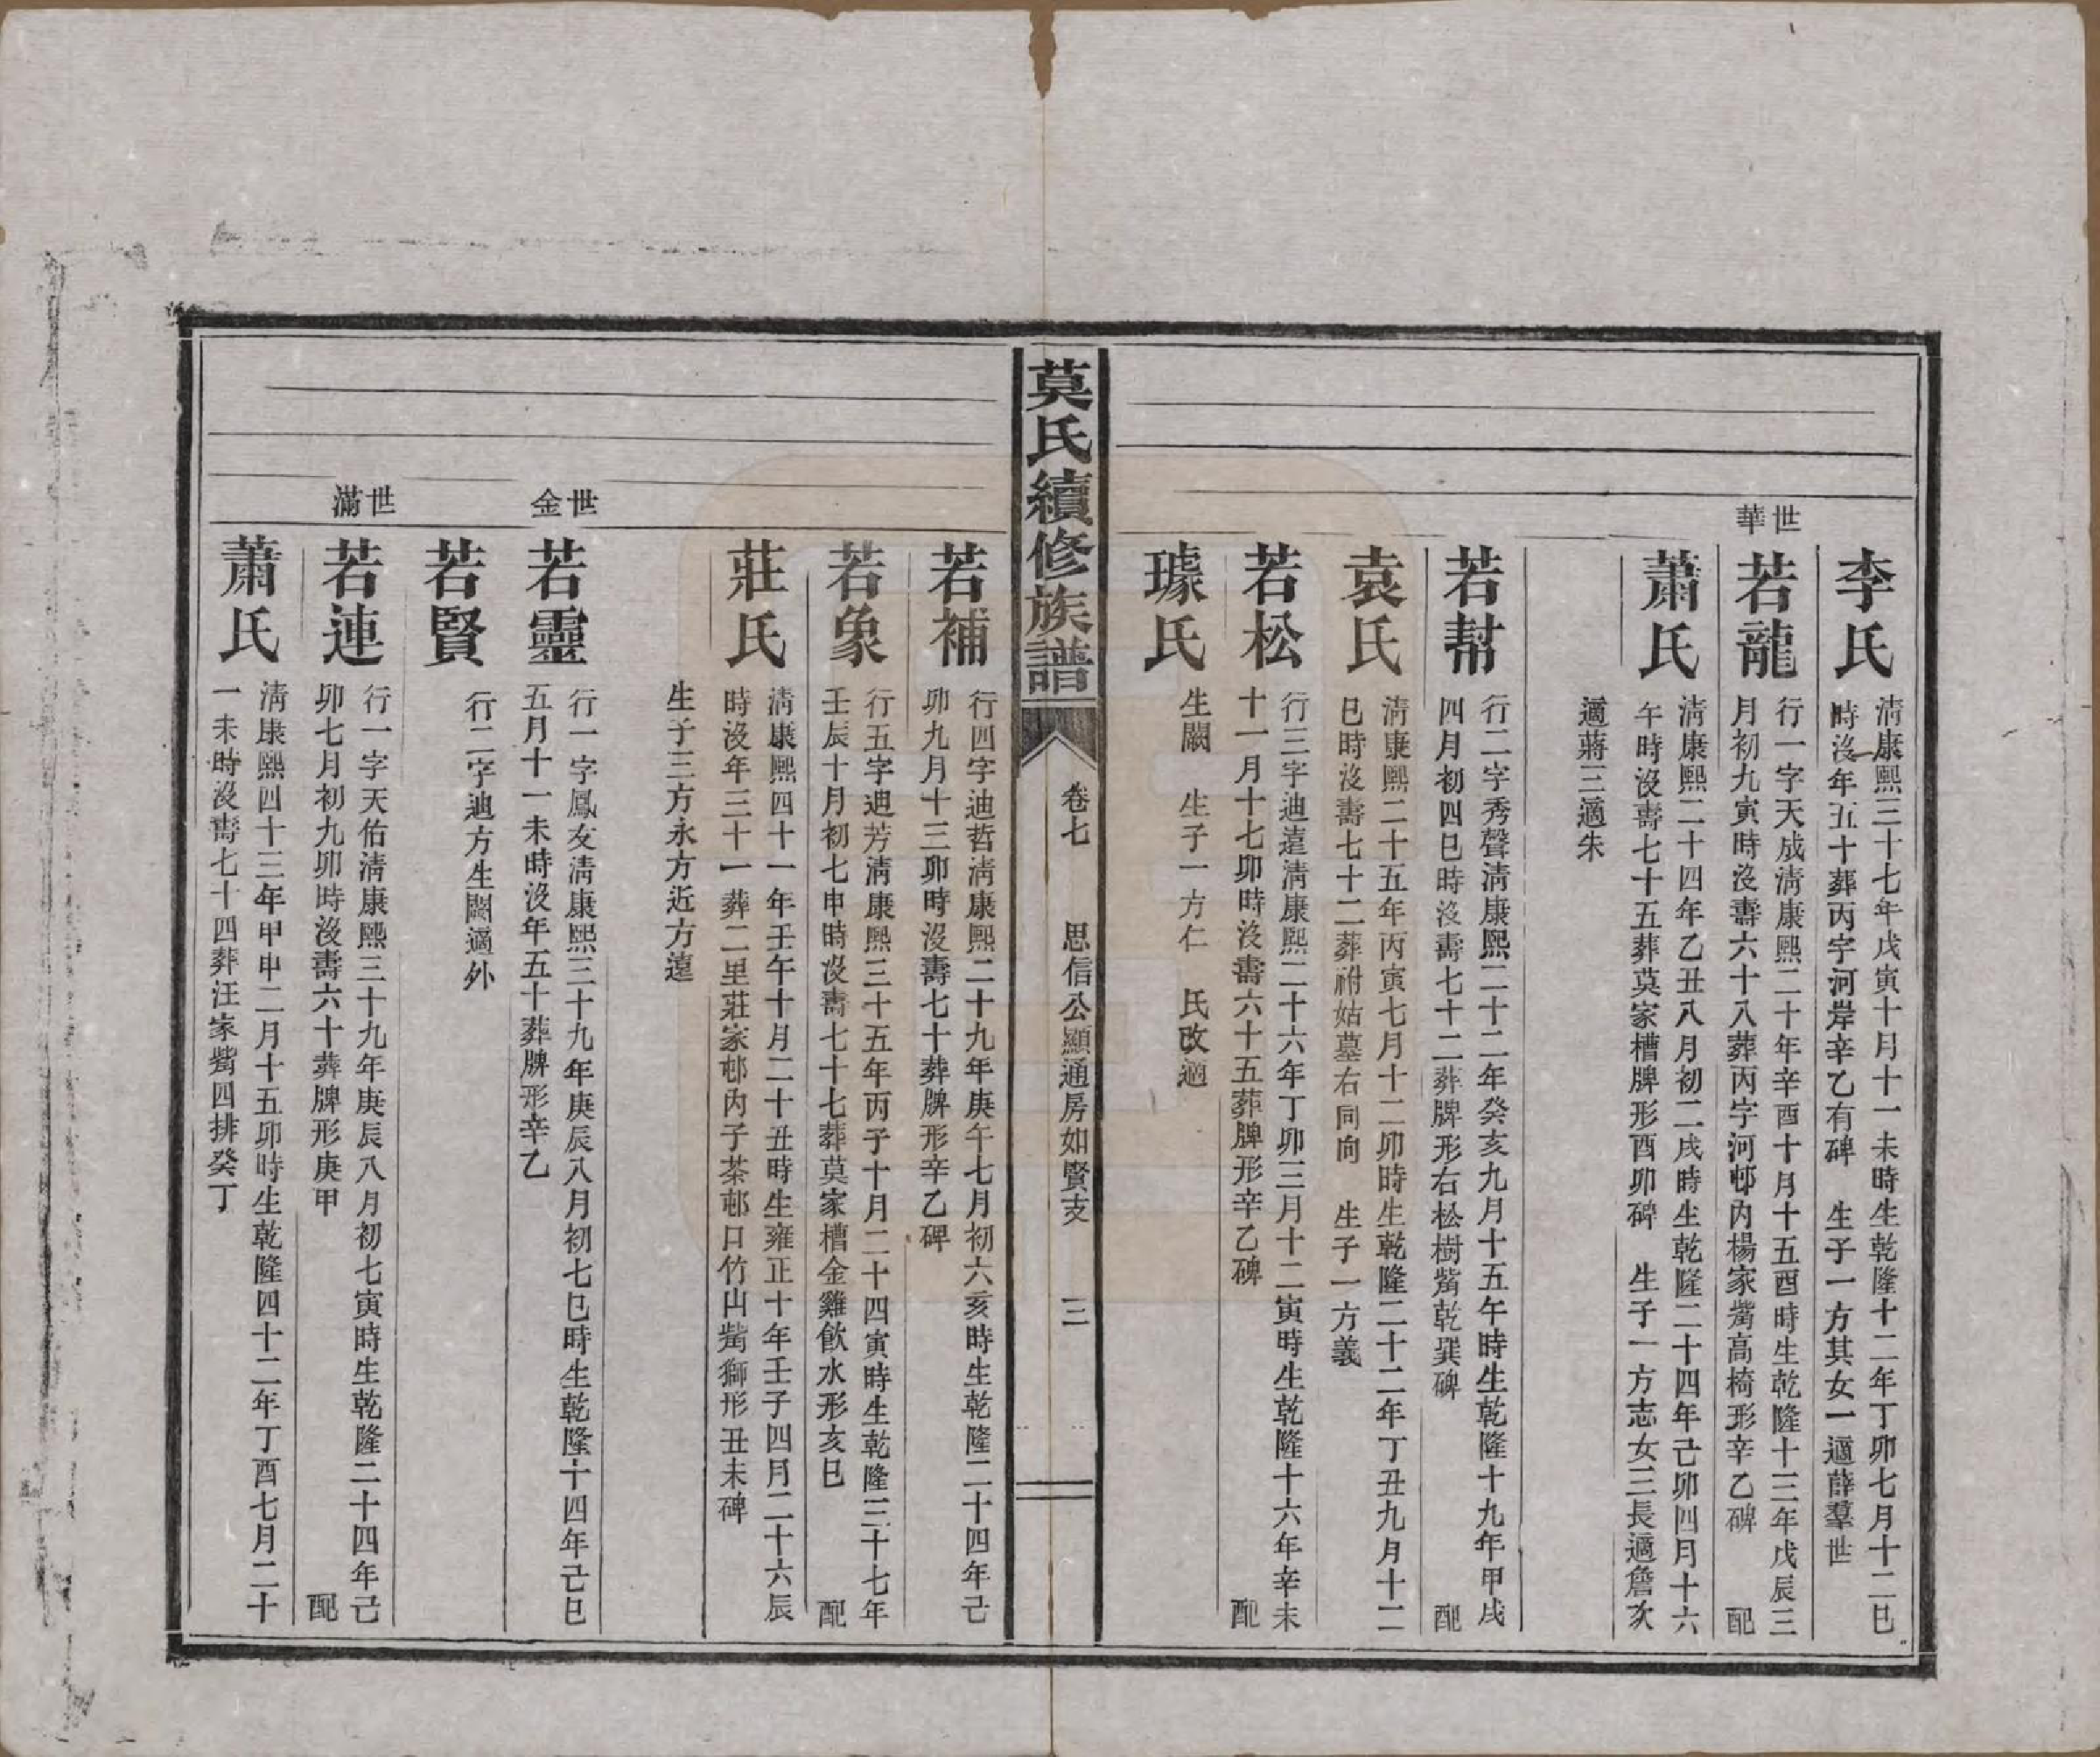 李氏
清康熙三十七年戊寅十月十一未時生乾隆十二年丁卯七月十二巳
時沒年五十葬丙字河岸辛乙有碑　生子一方其女一適薛羣世
世華
若龍
行一字天成清康熙二十年辛酉十月十五酉時生乾隆十三年戊辰三
月初九寅時沒壽六十八葬丙字河邨內楊家觜高椅形辛乙碑　配
蕭氏
清康熙二十四年乙丑八月初二戌時生乾隆二十四年己卯四月十六
午時沒壽七十五葬莫家槽牌形酉卯碑　生子一方志女三長適詹次
適蔣三適朱
若幇
行二字秀聲清康熙二十二年癸亥九月十五午時生乾隆十九年甲戌
四月初四巳時沒壽七十二葬牌形右松樹觜乾巽碑　配
袁氏
清康熙二十五年丙寅七月十二卯時生乾隆二十二年丁丑九月十二
巳時沒壽七十二葬祔姑墓右同向　生子一方義
若松
行三字迪遠清康熙二十六年丁卯三月十二寅時生乾隆十六年辛未
十一月十七卯時沒壽六十五葬牌形辛乙碑　配
璩氏
生闕　生子一方仁　氏改適
莫氏續修族譜
卷七　思信公顯通房如賢支　三
若補
行四字迪哲清康熙二十九年庚午七月初六亥時生乾隆二十四年己
卯九月十三卯時沒壽七十葬牌形辛乙碑
若象
行五字迪芳清康熙三十五年丙子十月二十四寅時生乾隆三十七年
壬辰十月初七申時沒壽七十七葬莫家槽金雞飲水形亥巳　配
莊氏
清康熙四十一年壬午十月二十丑時生雍正十年壬子四月二十六辰
時沒年三十一葬二里莊家邨內子茶邨口竹山觜獅形丑未碑
生子三方永方近方遠
世金
若靈
行一字鳳友清康熙三十九年庚辰八月初七巳時生乾隆十四年己巳
五月十一未時沒年五十葬牌形辛乙
若賢
行二字迪方生闕適外
世滿
若連
行一字天佑清康熙三十九年庚辰八月初七寅時生乾隆二十四年己
卯七月初九卯時沒壽六十葬牌形庚甲　配
蕭氏
清康熙四十三年甲申二月十五卯時生乾隆四十二年丁酉七月二十
一未時沒壽七十四葬汪家觜四排癸丁